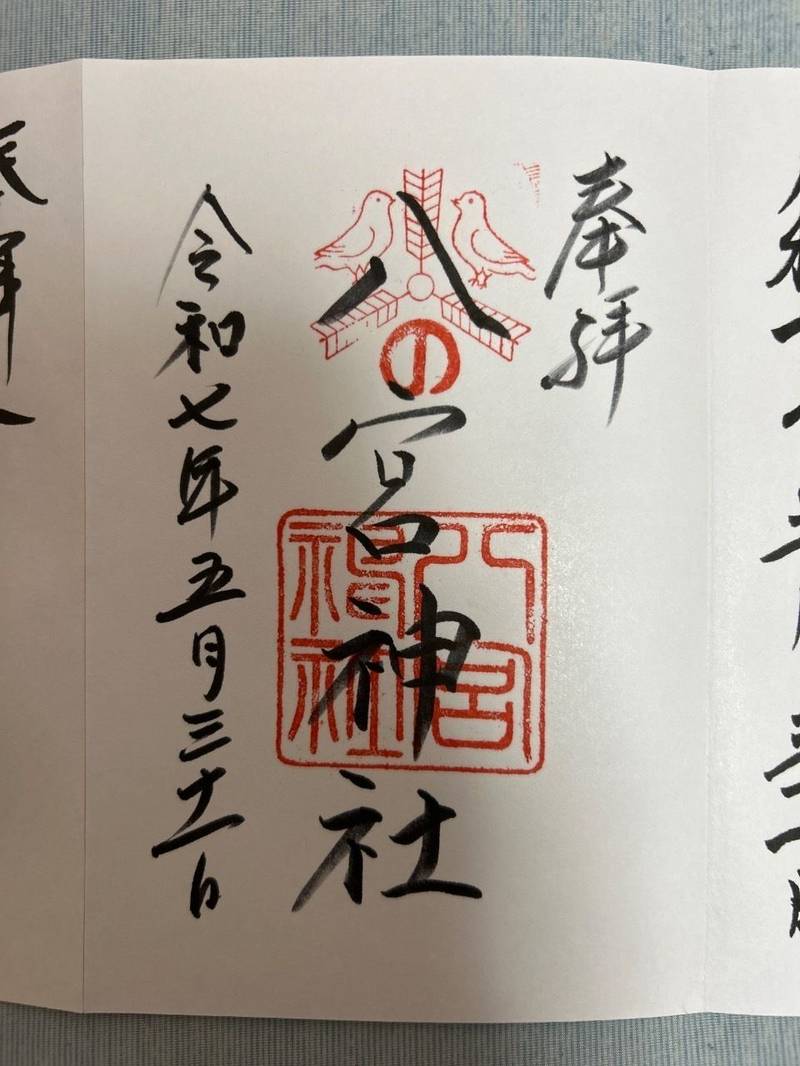 奉拝
八の宮神社
八宮神社
令和七年五月三十一日